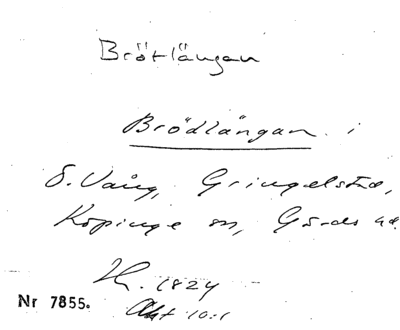 Brötlängan
Brödlängan i
Ö. Vång, Gringelstad,
Köpinge sn, Gärds hd.
1824
Akt 10:1
Nr 7855.